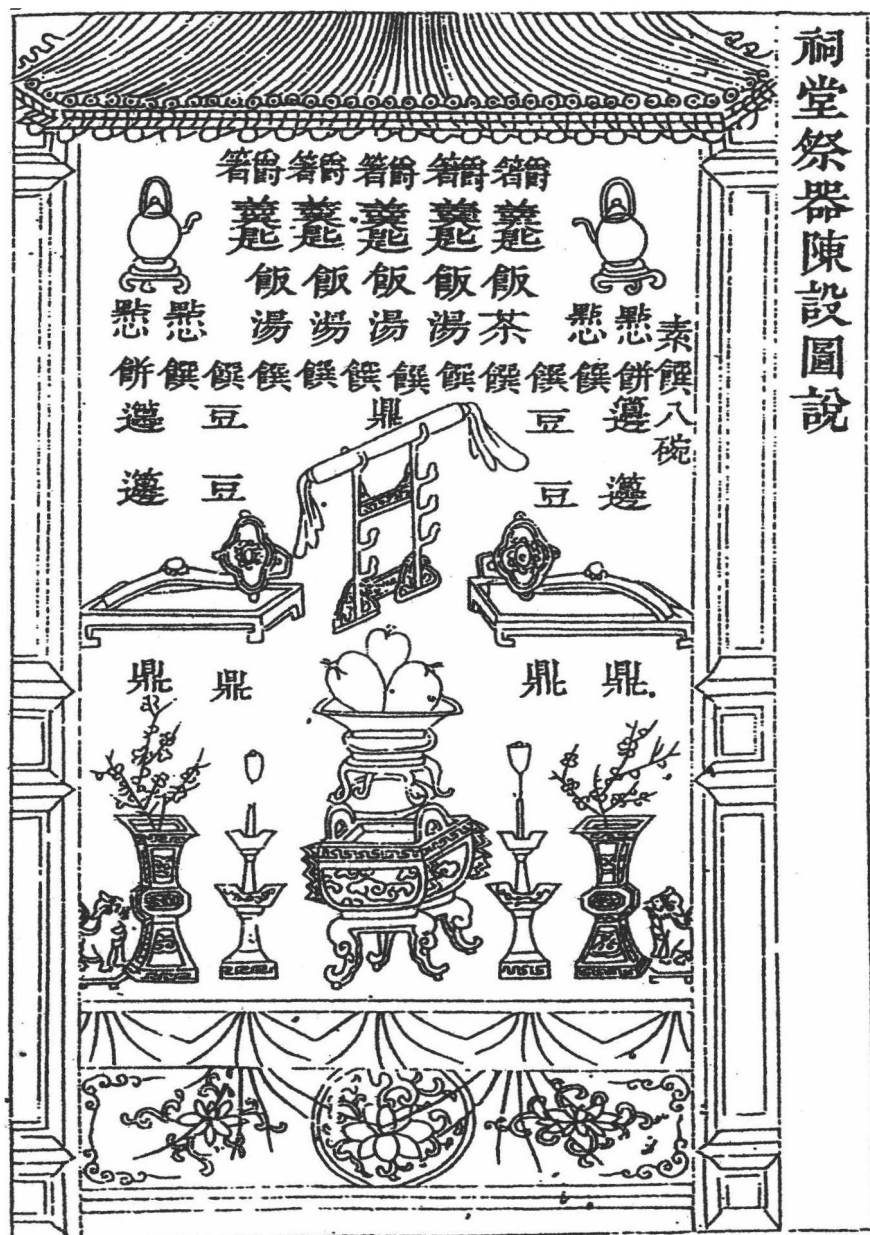 祠堂祭器陳設圖說
箸爵 箸爵 箸爵 箸爵 箸爵
羹匙 羹匙 羹匙 羹匙 羹匙
飯 飯 飯 飯 飯
點心 點心 湯 湯 湯 湯 茶 點心 點心
素饌八碗
餅 饌 饌 饌 饌 饌 饌 饌 饌 饌 饌 餅
籩 豆 鼎 豆 籩
籩 豆 豆 籩
鼎 鼎 鼎 鼎